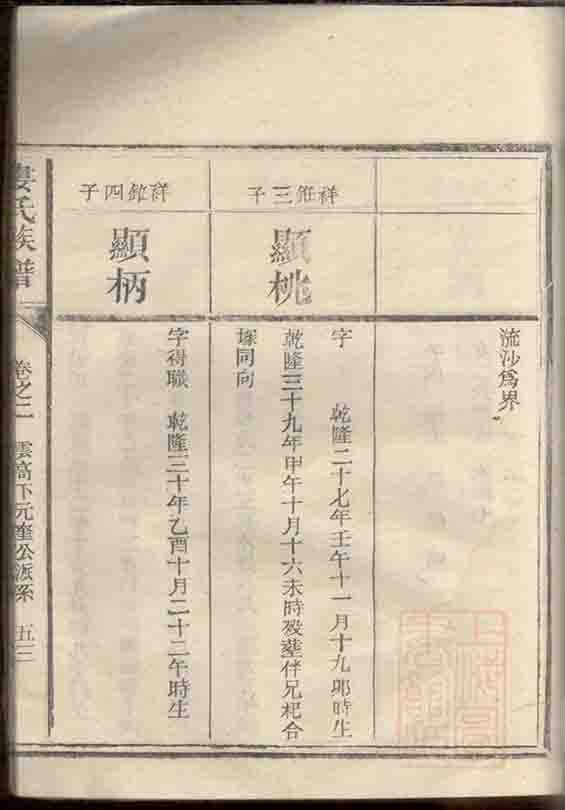 流沙為界
祥俇三子
顯桃
字　乾隆二十七年壬午十一月十九卯時生
乾隆三十九年甲午十月十六未時殁塟伴兄杞合
塚同向
祥俇四子
顯柄
字得職　乾隆三十年乙酉十月二十二午時生
婁氏族譜
卷之二　雲高下元奎公派系　五三